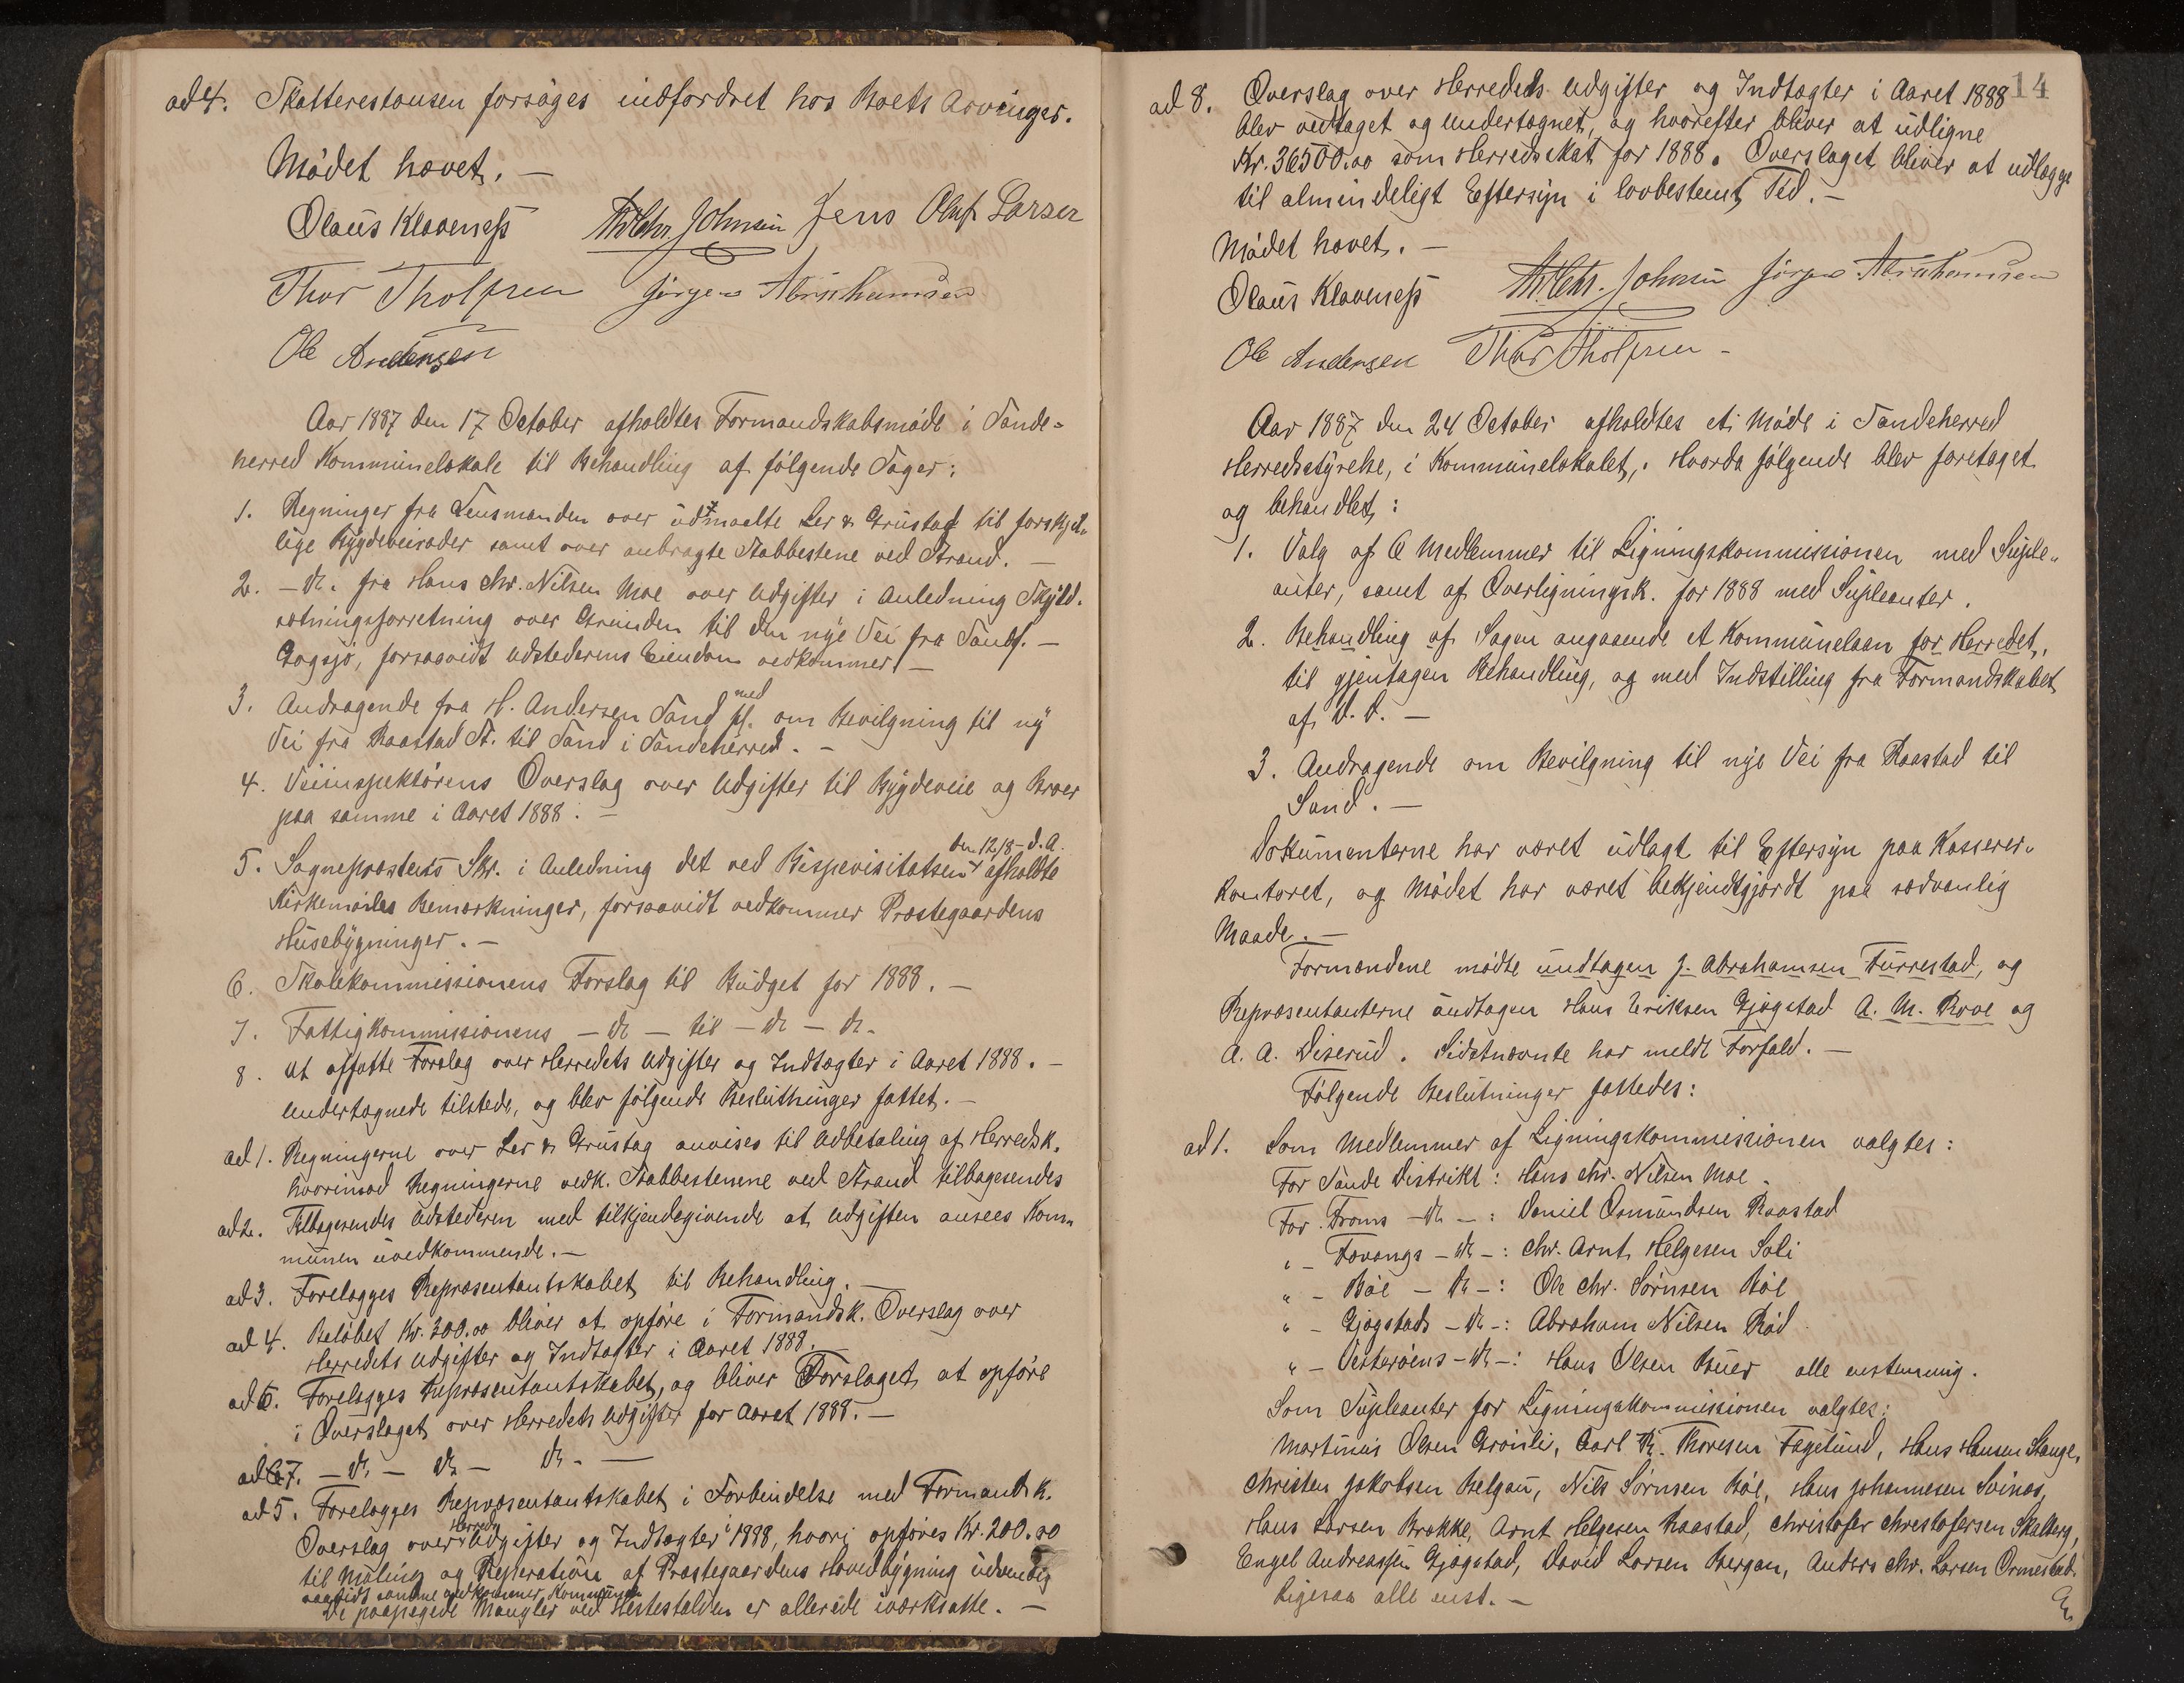 ad 4. Skatterestansen forsøges indfordret hos Boets Arvinger.
Mødet hævet. —
Olaus Klaveness Johnsen Jens Oluf Larsen
Thor Tholfsen Jørgen Abrahamsen
Ole Andersen
Aar 1887 den 17 October afholdtes Formandskabsmøde i Sande-
herred Kommunelokale til Behandling af følgende Sager:
1. Regninger fra Lensmanden over udmaalte Ler & Grustag til forskjel-
lige Bygdeveirøder samt over anbragte Stabbestene ved Strand. —
2. — do. fra Hans Chr. Nilsen Moe over Udgifter i Anledning Skyld-
sætningsforretning over Grunden til den nye Vei fra Sandf. —
Gogsjø, forsaavidt Udstederens Eiendom vedkommer. —
3. Andragende fra H. Andersen Sand med fl. om Bevilgning til ny
Vei fra Raastad St. til Sand i Sandeherred. —
4. Veiinspektørens Overslag over Udgifter til Bygdeveie og Broer
paa samme i Aaret 1888. —
5. Sognepræstens Skr. i Anledning det ved Bispevisitatsen den 12/8 d. A. afholdte
Kirkemødes Bemærkninger, forsaavidt vedkommer Præstegaardens
Husebygninger. —
6. Skolekommissionens Forslag til Budget for 1888. —
7. Fattigkommissionens — do — til — do — do.
8. At affatte Forslag over Herredets Udgifter og Indtægter i Aaret 1888. —
Undertegnede tilstede, og blev følgende Beslutninger fattet. —
ad 1. Regningerne over Ler & Grustag anvises til Udbetaling af Herredsk.
hvorimod Regningerne vedk. Stabbestenene ved Strand tilbagesendes
ad 2. Tilbagesendes Udstederen med tilkjendegivende at Udgiften ansees Kom-
munen uvedkommende. —
ad 3. Forelægges Repræsentantskabet til Behandling. —
ad 4. Beløbet Kr. 300.00 bliver at opføre i Formandsk. Overslag over
Herredets Udgifter og Indtægter i Aaret 1888. —
ad 6. Forelægges Repræsentantskabet, og bliver Forslaget at opføre
i Overslaget over Herredets Udgifter for Aaret 1888. —
ad 7. — do — do — do. —
ad 5. Forelægges Repræsentantskabet i Forbindelse med Formandsk.
Overslag over Herreds Udgifter og Indtægter i 1888, hvori opføres Kr. 200.00
til Maling og Reperation af Præstegaardens Hovedbygning udvendig
saavidt samme vedkommer Kommunen
De paapegede Mangler ved Hestestalden er allerede iværksatte. —
14
ad 8. Overslag over Herredets Udgifter og Indtægter i Aaret 1888
blev vedtaget og undertegnet, og hvorefter bliver at udligne
Kr. 36500.00 som Herredsskat for 1888. Overslaget bliver at udlægge
til almindeligt Eftersyn i lovbestemt Tid. —
Mødet hævet. —
Olaus Klaveness Johnsen Jørgen Abrahamsen
Ole Andersen Thor Tholfsen —
Aar 1887 den 24 October afholdtes et Møde i Sandeherred
Herredsstyrelse, i Kommunelokalet. Hvorda følgende blev foretaget
og behandlet:
1. Valg af 6 Medlemmer til Ligningskommissionen med Suple-
anter, samt af Overligningsk. for 1888 med Supleanter.
2. Behandling af Sagen angaaende et Kommunelaan for Herredet,
til gjentagen Behandling, og med Indstilling fra Formandskabet
af D. D. —
3. Andragende om Bevilgning til nye Vei fra Raastad til
Sand. —
Dokumenterne har været udlagt til Eftersyn paa Kasserer-
kontoret, og Mødet har været bekjendtgjordt paa sædvanlig
Maade. —
Formændene mødte undtagen J. Abrahamsen Furrestad, og
Repræsentanterne undtagen Hans Eriksen Gjøgstad A. M. Roe og
A. A. Diserud. Sidstnævnte har meldt Forfald. —
Følgende Beslutninger fattedes:
ad 1. Som Medlemmer af Ligningskommissionen valgtes:
For Sande Distrikt: Hans Chr. Nilsen Moe.
For Froms — do —: Daniel Osmundsen Raastad
" — Fovangs — do —: Chr. Arnt Helgesen Soli
" — Bøe — do —: Ole Chr. Sørnsen Bøe
" — Gjøgstads — do —: Abraham Nilsen Rød
" — Vesterøens — do —: Hans Olsen Buer alle enstemmig.
Som Supleanter for Ligningskommissionen valgtes:
Martinius Olsen Grønli, Carl Th. Thoresen Fagelund, Hans Hansen Stange,
Christen Jakobsen Belgau, Nils Sørnsen Bøe, Hans Johannesen Svines,
Hans Larsen Brække, Arnt Helgesen Raastad, Christofer Christofersen Skalberg,
Engel Andreassen Gjøgstad, David Larsen Bergan, Anders Chr. Larsen Ormestad.
Ligesaa alle enst. —